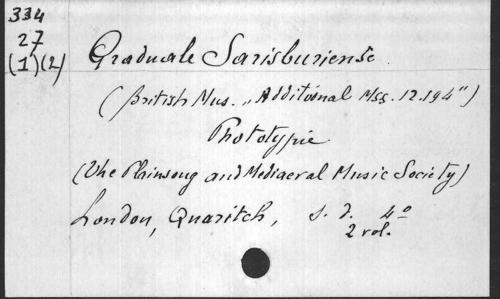 334
27
(1)(2)
Graduale Sarisburiense.
(British Mus. „Additoinal Mss. 12.194")
Phototypie
(The Plainsong and Mediaeval Music Society)
London, Quaritch, s. d. 4º
2 vol.